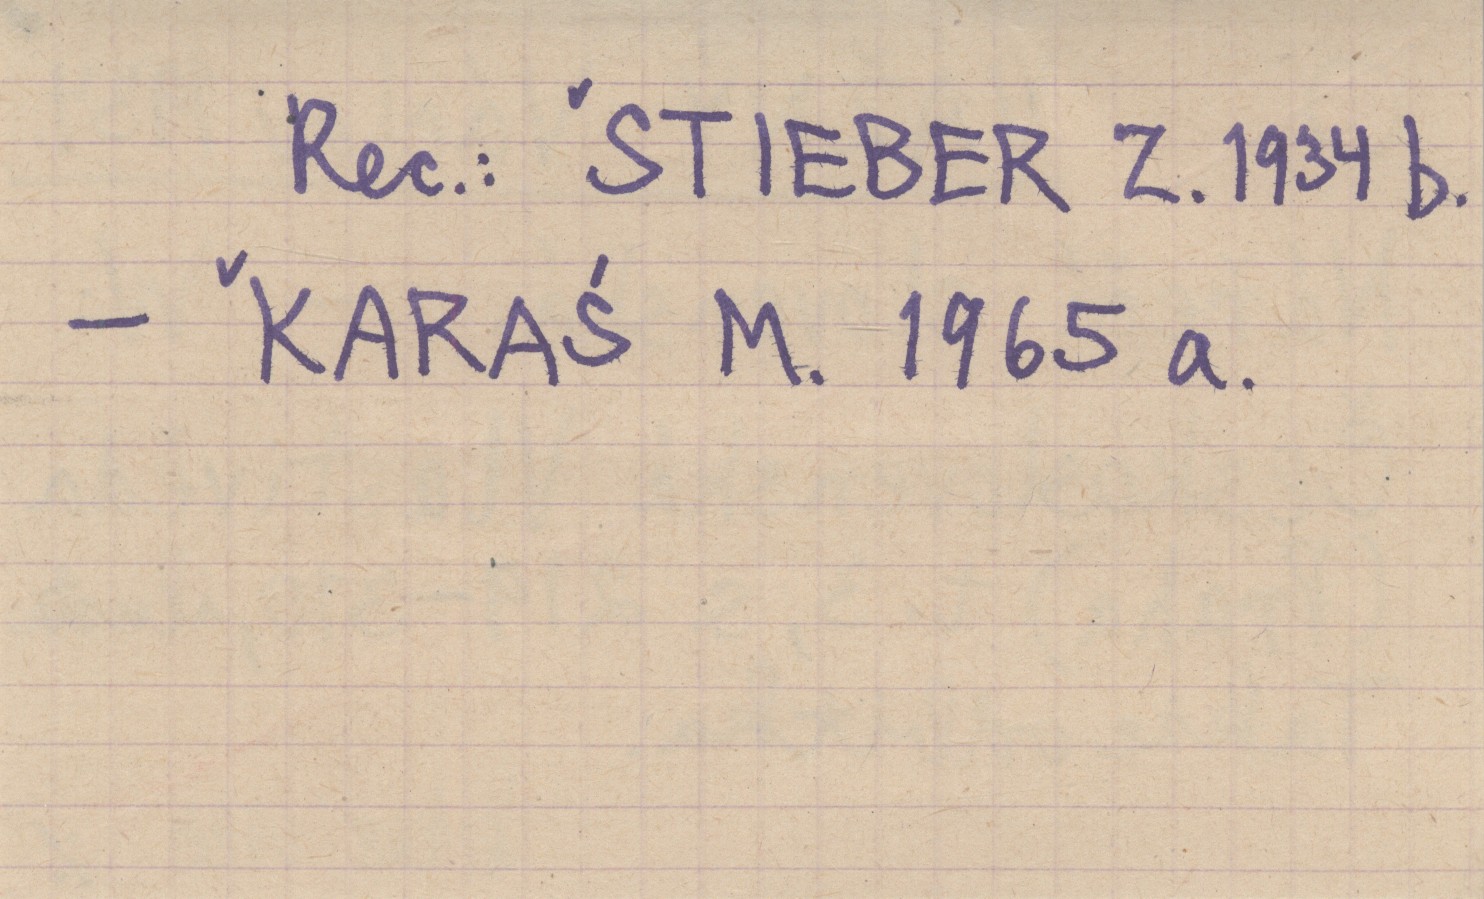 Rec.: ˇSTIEBER Z. 1934 b.
— ˇKARAŚ M. 1965 a.